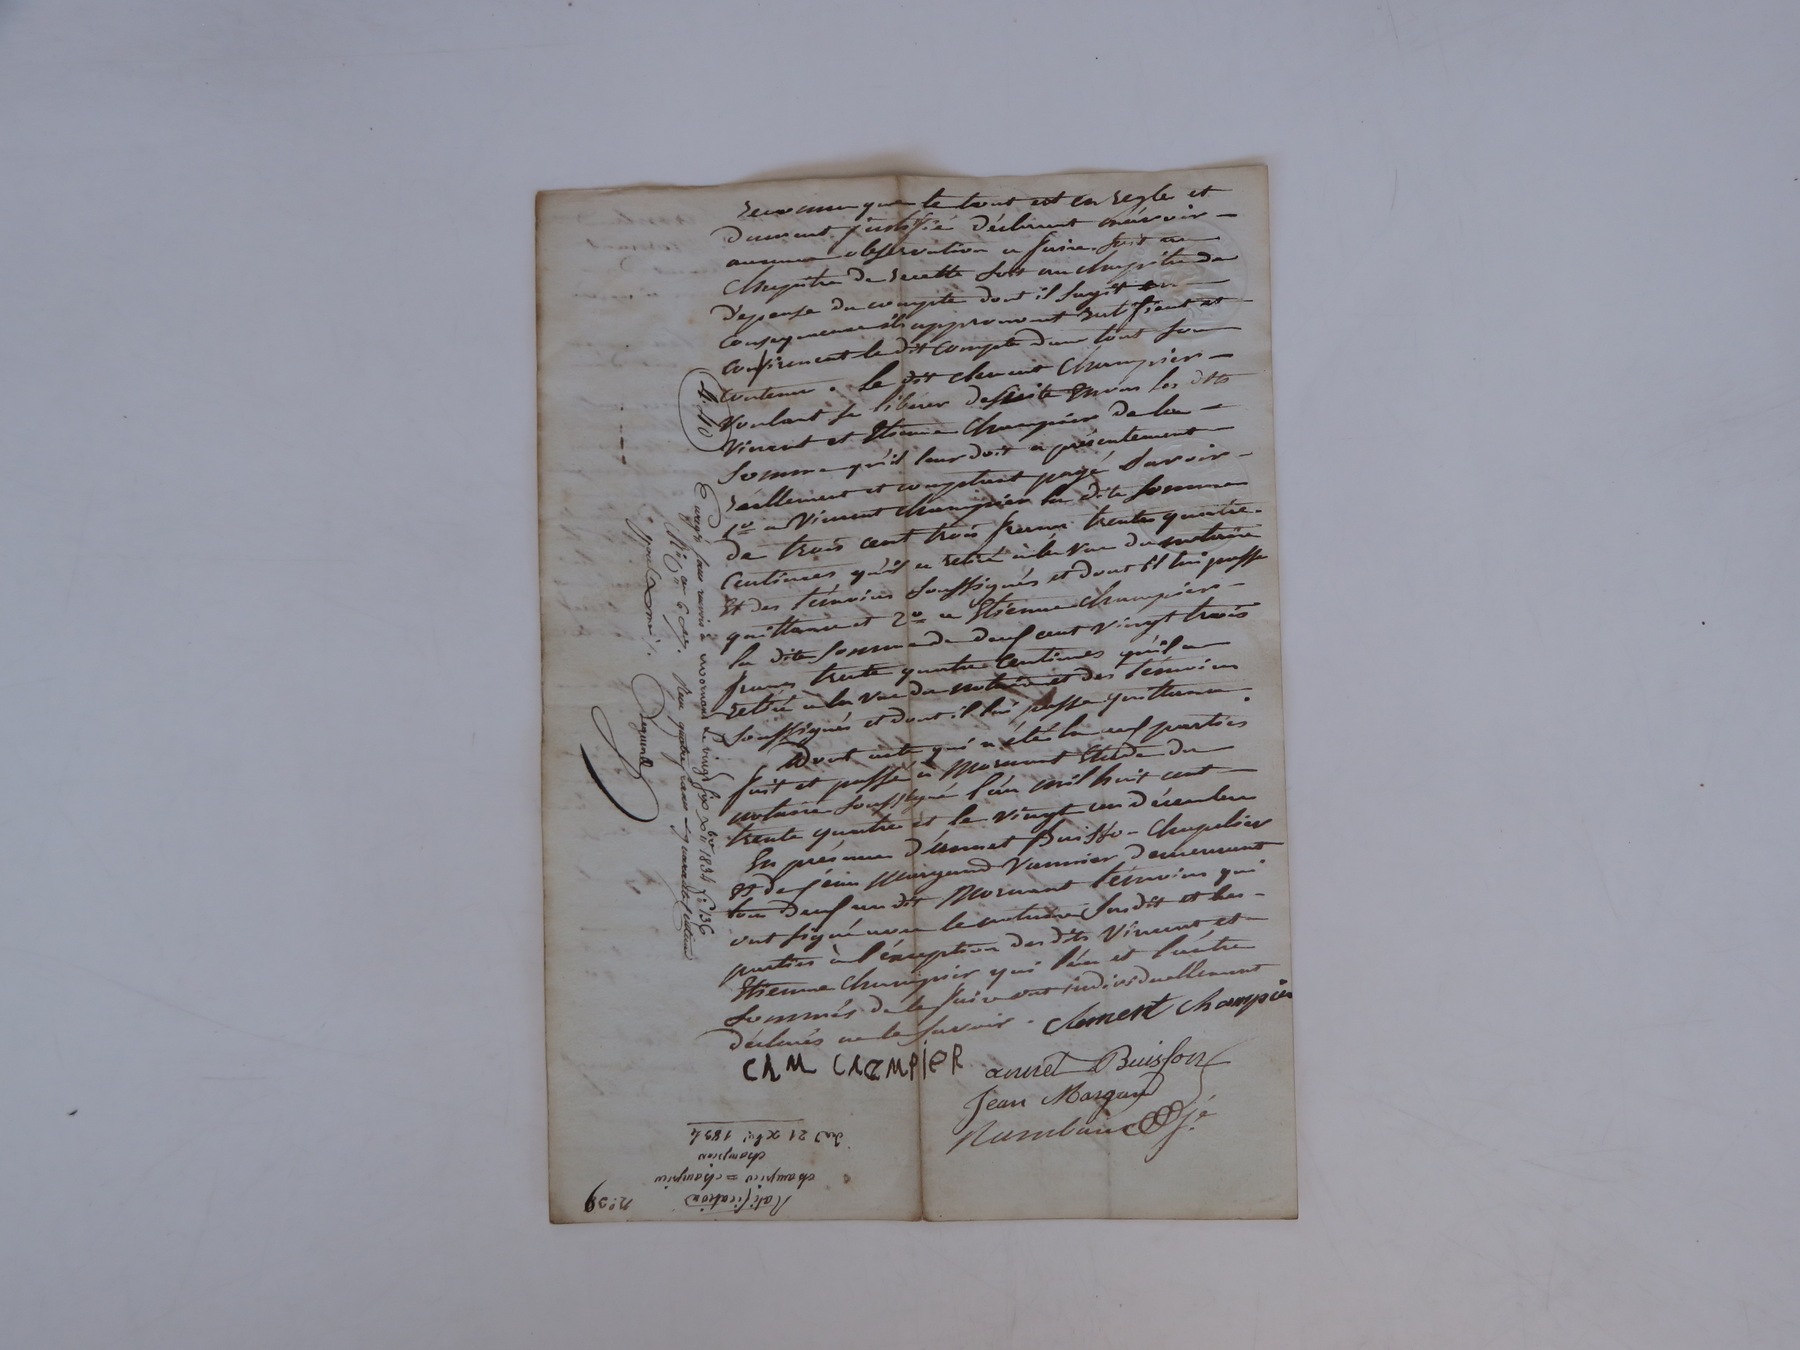 reconnu que le tout est en regle et
dument justifié déclarent n'avoir
aucune observation a faire soit au
chapitre de recette soit au chapitre de
dépense du compte dont il sagit en
consequence ils approuvent ratifient et
confirment le dit compte dans tout son
contenu. le dit clement champier
voulant se libérer desuite envers les dits
Vincent et Etienne champier de la
somme qu'il leur doit a présentement
réellement et comptant payé savoir
1º a Vincent champier la dite somme
de trois cent trois francs trente quatre
centimes, qu'il a retiré à la vue du notaire
et des témoins soussignés et dont il lui passe
quittance et 2º a Etienne champier
la dite somme de deux cent vingt trois
francs trente quatre centimes qu'il a
retiré à la vue du notaire et des témoins
soussignés et dont il lui passe quittance.
Dont acte qui a été lu aux parties
fait et passé à Mornant Etude du
notaire soussigné l'an mil huit cent
trente quatre et le vingt un décembre
En présence d'annet Buisson chapelier
et de Jean Margand Vannier demeurant
tous deux au dit Mornant témoins qui
ont signé avec le notaire susdit et les
parties à l'éxception des dits Vincent et
Etienne champier qui l'un et l'autre
sommés de le faire ont individuellement
déclarés ne le savoir. clement champier
CAM CHAMPIER
annet Buisson
Jean Margand
4.40
Enregé sans renvoi à mornant le vingt six xbre 1834 fº 136
Rº cn 6 et 7. Reçu quatre francs quarante centimes
Ratification
champier = champier
champier
du 21 xbre 1834
nº 39